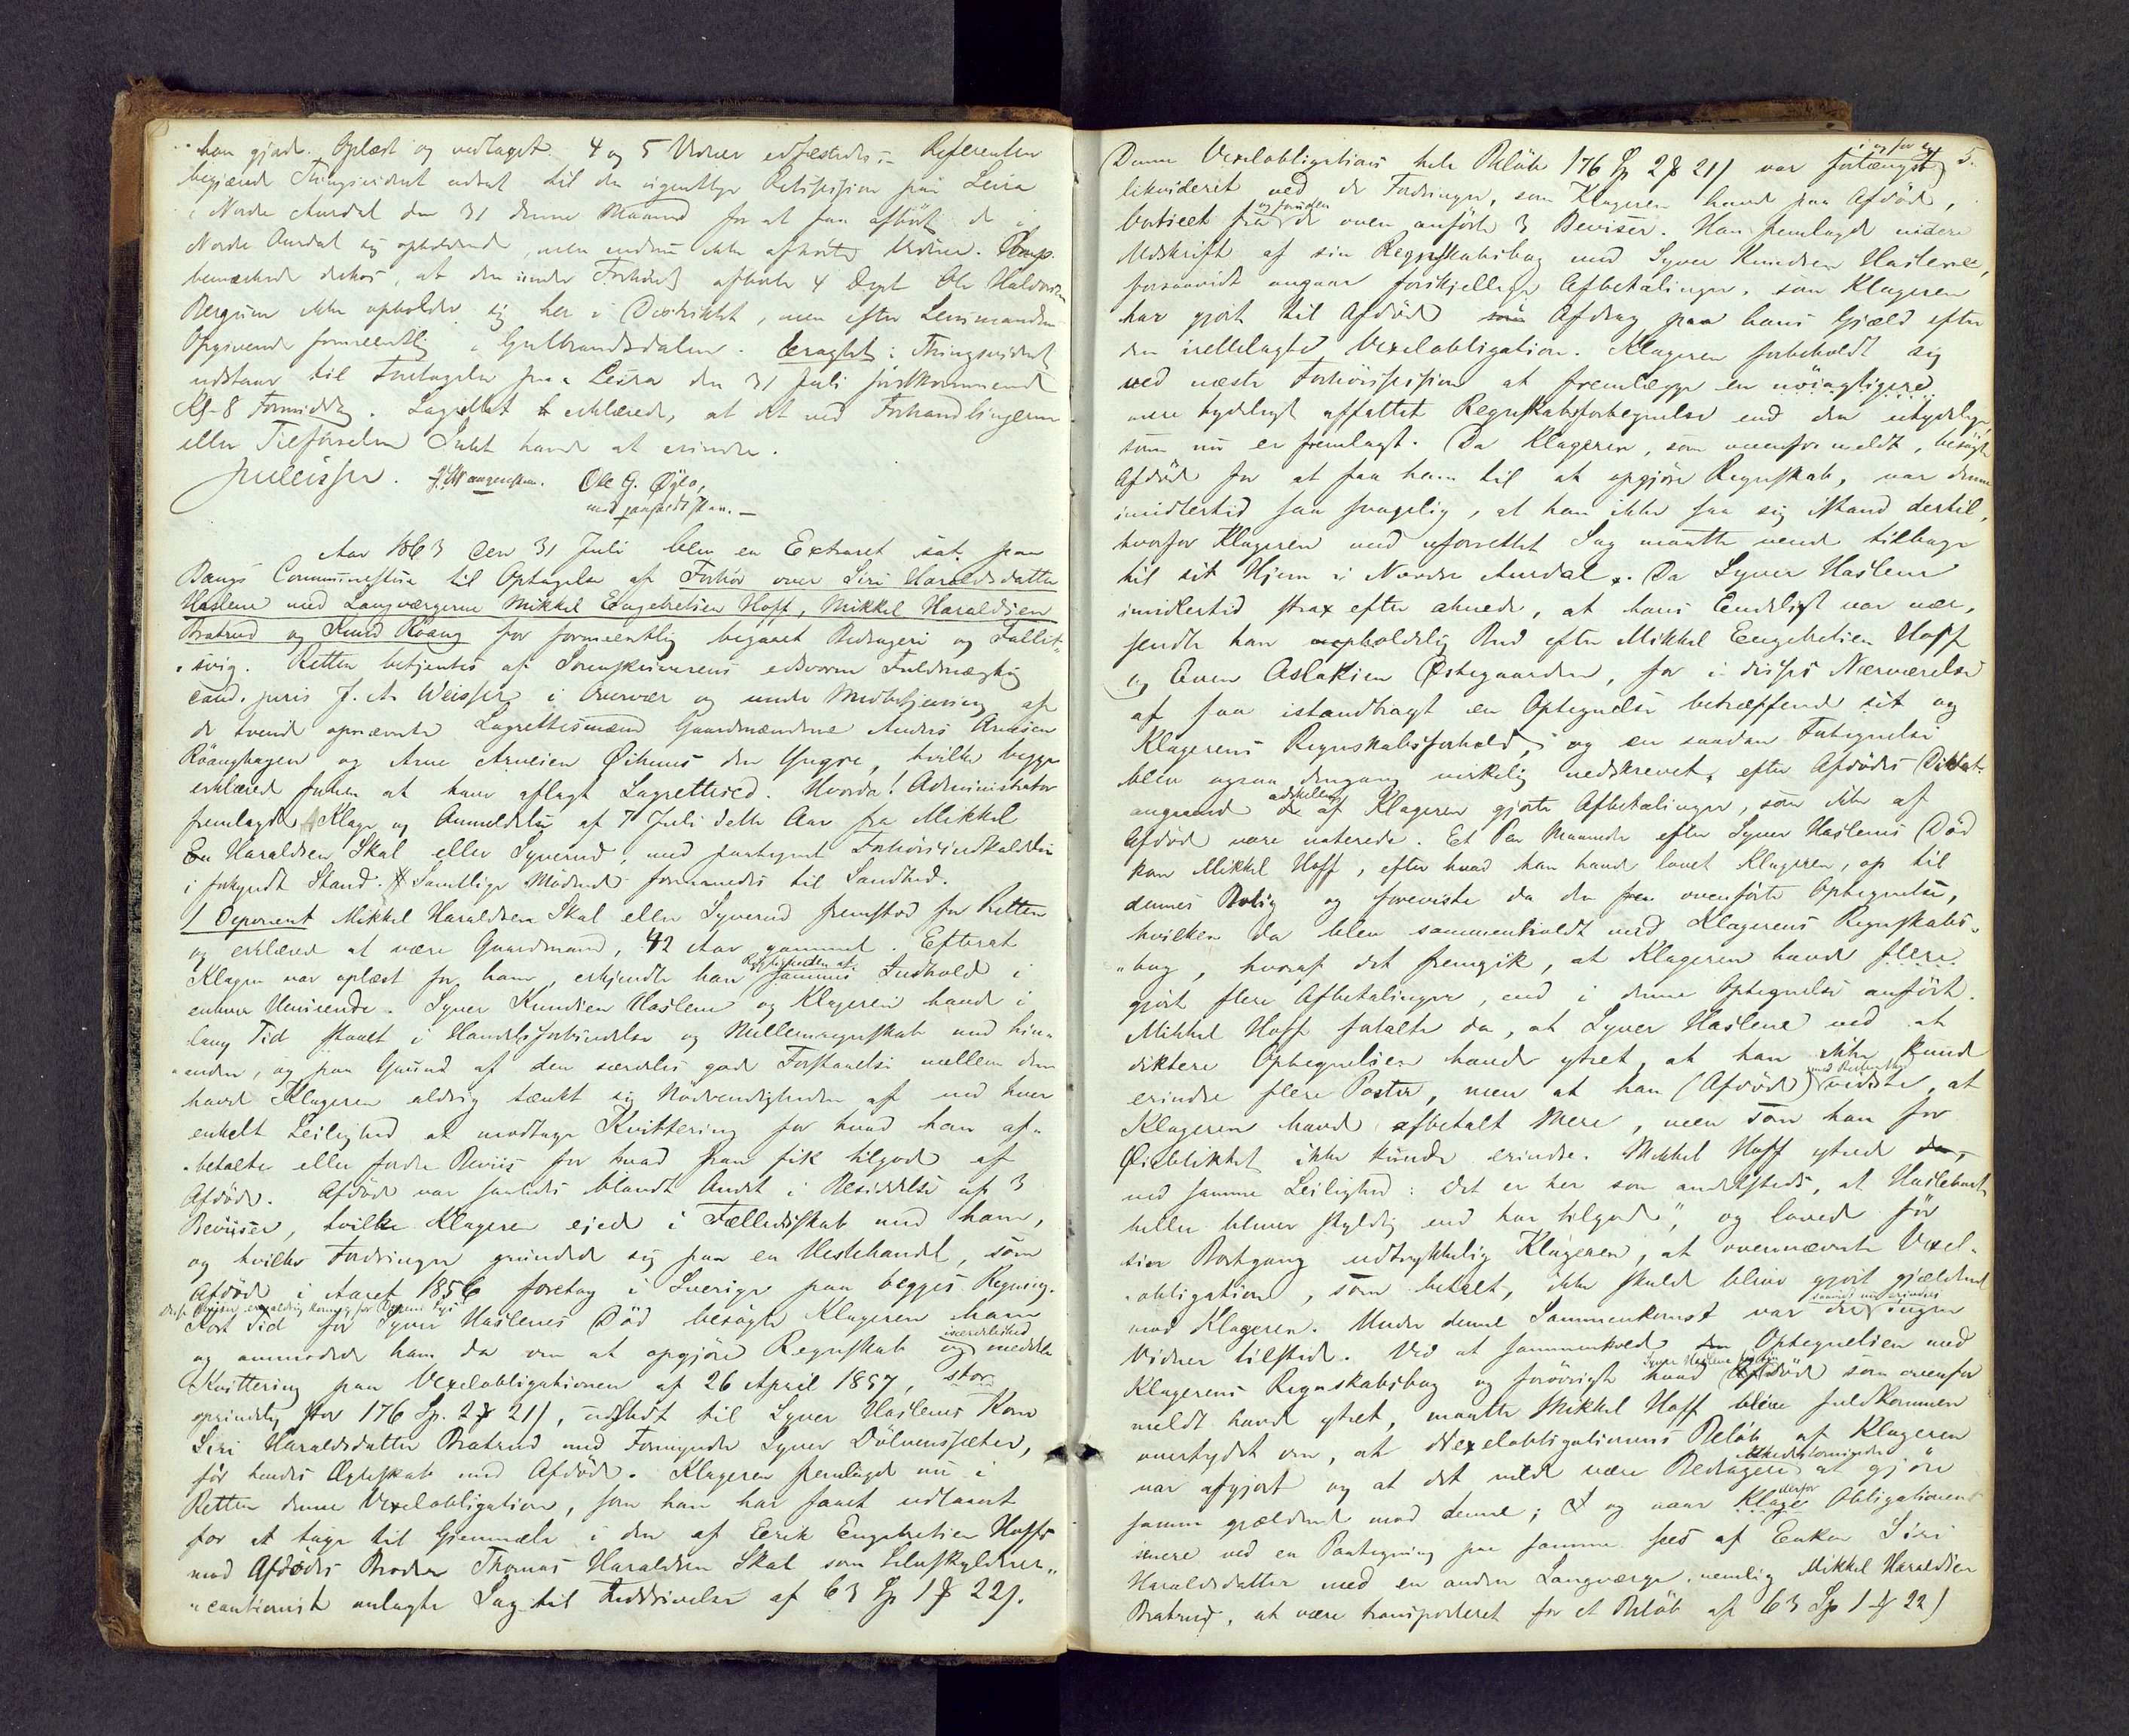 han gjorde. Oplæst og vedtaget. 4 og 5 Vidner edfæstedes. Referenten
begjærede Thingsvidnet udsat til den egentlige Retssession paa Leira
i Nordre Aurdal den 31 denne Maaned for at faa afhørt de i
Nordre Aurdal sig opholdende, men endnu ikke afhørte Vidner. Comp.
bemærkede derhos, at den under Forhøret afhørte 4 Dept. Ole Haldorsen
Bergum ikke opholder sig her i Districtet, men efter Lensmandens
Opgivende formeentlig i Gulbrandsdalen. Eragtet: Thingsvidnet
udstaar til Foretagelse paa Leira den 31 Juli førstkommende
Kl. 8 Formiddag. Lagrettet erklærede, at det ved Forhandlingerne
eller Tilførselen Intet havde at erindre.
JWeisser. J. Wangensten. Ole G. Øylo,
med paaholdt Pen. —
Aar 1863 den 31 Juli blev en Extraret sat paa
Bangs Communestue til Optagelse af Forhør over Siri Haraldsdatter
Haslene med Laugværgerne Mikkel Engebretsen Hoff, Mikkel Haraldsen
Bratrud og Knud Roang for formeentlig begaaet Bedrageri og Fallit-
svig. Retten betjentes af Sorenskriverens edsvorne Fuldmægtig
cand. juris J. A. Weisser i Overvær og under Medbetjening af
de tvende opnævnte Lagrettesmænd Gaardmændene Anders Arnesen
Röanghagen og Arne Arnesen Øihuus den Yngre, hvilke begge
erklærede forhen at have aflagt Lagrettesed. Hvorda! Administrator
fremlagde Klage og Anmeldelse af 7 Juli dette Aar fra Mikkel
Haraldsen Skal eller Syverud, med paategnet Forhørsindkaldelse
i forkyndt Stand. Samtlige Mödende formanedes til Sandhed.
1 Deponent Mikkel Haraldsen Skal eller Syverud fremstod for Retten
og erklærede at være Gaardmand, 42 Aar gammel. Efterat
Klagen var oplæst for ham, erkjendte han Rigtigheden af sammes Indhold i
enhver Henseende. Syver Knudsen Haslene og Klageren havde i
lang Tid staaet i Handelsforbindelse og Mellemregnskab med hin-
anden, og paa Grund af den særdeles gode Forstaaelse mellem dem
havde Klageren aldrig tænkt sig Nödvendigheden af ved hver
enkelt Leilighed at modtage Kvittering for hvad han af-
betalte eller fordre Beviis for hvad han fik tilgode af
Afdöde. Afdöde var saaledes blandt Andet i Besiddelse af 3
Beviser, hvilke Klageren ejede i Fælledsskab med ham,
og hvilke Fordringer grundede sig paa en Hestehandel, som
Afdöde i Aaret 1856 foretog i Sverige paa begges Regning.
Kort Tid för Syver Haslenes Död besögte Klageren ham
og anmodede ham da om at opgjöre Regnskab og især meddele
Kvittering paa Vexelobligationen af 26 April 1857, stor
oprindelig stor 176 Sp. 2 ₰ 21 ſ, udstedt til Syver Haslenes Kone
Siri Haraldsdatter Bratrud med Formynder Syver Dölvenssæter,
för hendes Ægteskab med Afdöde. Klageren fremlagde nu i
Retten denne Vexelobligation, som han har faaet udlaant
for at tage til Gjenmæle i den af Eerik Engebretsen Hoff
mod Afdödes Broder Thomas Haraldsen Skal som Selvskyldner-
cautionist anlagte Sag til Inddrivelse af 63 Sp 1 ₰ 22 ſ.
5.
Denne Vexelobligations hele Belöb 176 Sp 2 ₰ 21 ſ var forlængst
likvideret ved de Fordringer, som Klageren havde paa Afdöde,
bortseet fra de oven anförte 3 Beviser. Han fremlagde videre
Udskrift af sin Regnskabsbog med Syver Knudsen Haslene,
forsaavidt angaar forskjellige Afbetalinger, som Klageren
har gjort til Afdöde som Afdrag paa hans Gjæld efter
den irettelagte Vexelobligation. Klageren forbeholdt sig
ved næste Forhörssession at fremlægge en nöiagtigere
mere tydeligt affattet Regnskabsforteg­nelse end den utydelige
som nu er fremlagt. Da Klageren, som ovenfor meldt, besögte
Afdöde for at faa ham til at opgjöre Regnskab, var denne
imidlertid saa svagelig, at han ikke saa sig istand dertil,
hvorfor Klageren med uforrettet Sag maatte vende tilbage
til sit Hjem i Nordre Aurdal. Da Syver Haslene
imidlertid strax efter ahnede, at hans Endeligt var nær,
sendte han uopholdelig Bud efter Mikkel Engebretsen Hoff
og Even Aslaksen Østegaarden, for i disses Nærværelse
at faa istandbragt en Optegnelse betræffende sit og
Klagerens Regnskabsforhold, og en saadan Fortegnelse
blev ogsaa dengang virkelig nedskrevet, efter Afdödes Diktat.
angaaende adskillige af Klageren gjorte Afbetalinger, som ikke af
Afdöde vare noterede. Et Par Maaneder efter Syver Haslenes Död
kom Mikkel Hoff, efter hvad han havde lovet Klageren, op til
dennes Bolig og foreviste da den ovenförte Optegnelse,
hvilken da blev sammenholdt med Klagerens Regnskabs-
bog, hvoraf det fremgik, at Klageren havde flere
gjort flere Afbetalinger, end i denne Optegnelse anfört.
Mikkel Hoff fortalte da, at Syver Haslene ved at
diktere Optegnelsen havde ytret, at han ikke kunde
erindre flere Poster, men at han (Afdöde) med Bestemthed vidste, at
Klageren havde afbetalt Mere, men som han for
Øieblikket ikke kunde erindre. Mikkel Hoff ytrede
ved samme Leilighed: "det er her som andetsteds, at Haslebraaten
heller bliver skyldig end har tilgode", og lovede för
sin Bortgang udtrykkelig Klageren, at ovennævnte Vexel-
obligation, som betalt, ikke skulde blive gjort gjældende
mod Klageren. Under denne Sammenkomst var der saavidt nu erindres ingen
Vidner tilstede. Ved at sammenhold Optegnelsen med
Klagerens Regnskabsbog og forövrigt hvad Syver Haslene som ovenfor
meldt havde ytret, maatte Mikkel Hoff blive fuldkommen
overtydet om, at Vexelobligationens Belöb af Klageren
var afgjort og at det vilde være Bedrageri at gjöre
samme gjældende mod denne; og naar derfor Obligationen
senere ved en Paategning paa samme sees af Enken Siri
Haraldsdatter med en anden Laugværge, nemlig Mikkel Haraldsen
Bratrud, at være transporteret for et Belöb af 63 Sp 1 ₰ 22 ſ